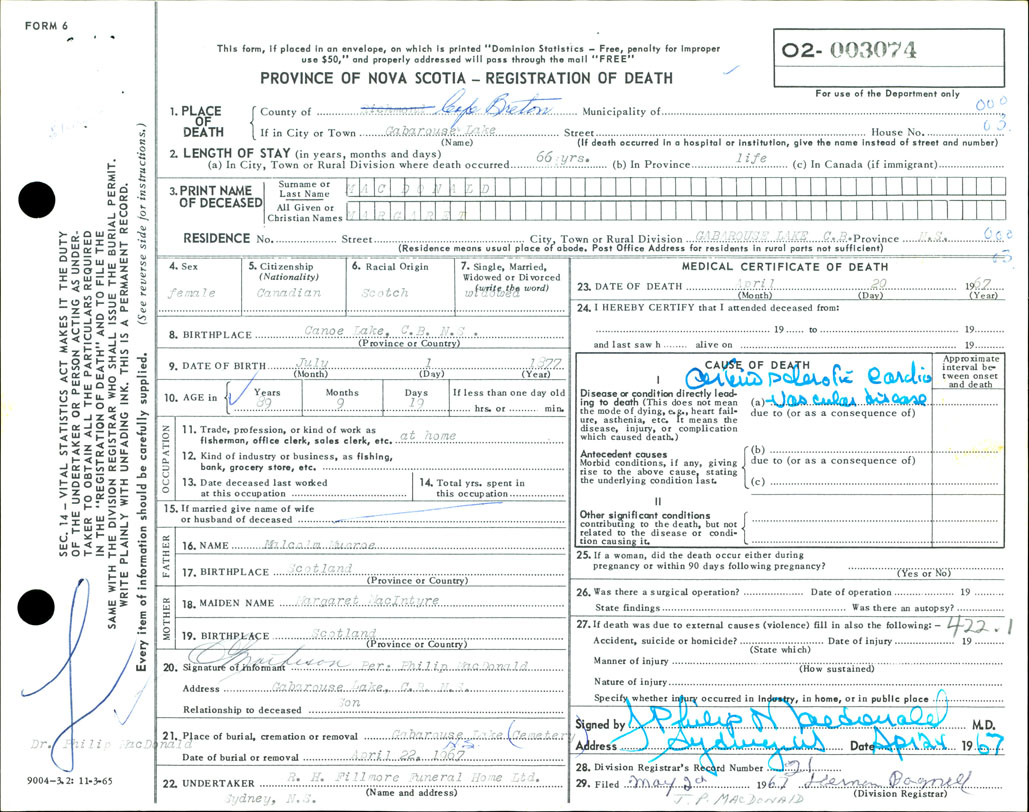 FORM 6
This form, if placed in an envelope, on which is printed "Dominion Statistics – Free, penalty for improper
use $50," and properly addressed will pass through the mail "FREE"
PROVINCE OF NOVA SCOTIA – REGISTRATION OF DEATH
O2- 003074
For use of the Department only
1. PLACE OF DEATH
County of Richmond Cape Breton Municipality of
000
If in City or Town Gabarouse Lake Street House No. 03
(Name) (If death occurred in a hospital or institution, give the name instead of street and number)
2. LENGTH OF STAY (in years, months and days)
(a) In City, Town or Rural Division where death occurred 66 yrs. (b) In Province life (c) In Canada (if immigrant)
3. PRINT NAME OF DECEASED
Surname or Last Name MAC DONALD
All Given or Christian Names MARGARET
RESIDENCE No. Street City, Town or Rural Division GABAROUSE LAKE C.B. Province N.S. 000
(Residence means usual place of abode. Post Office Address for residents in rural parts not sufficient) 03
4. Sex female
5. Citizenship (Nationality) Canadian
6. Racial Origin Scotch
7. Single, Married, Widowed or Divorced (write the word) widowed
8. BIRTHPLACE Canoe Lake, C.B. N.S.
(Province or Country)
9. DATE OF BIRTH July 1 1877
(Month) (Day) (Year)
10. AGE in Years 89 Months 9 Days 19 If less than one day old hrs. or min.
OCCUPATION
11. Trade, profession, or kind of work as fisherman, office clerk, sales clerk, etc. at home
12. Kind of industry or business, as fishing, bank, grocery store, etc.
13. Date deceased last worked at this occupation
14. Total yrs. spent in this occupation
15. If married give name of wife or husband of deceased
FATHER
16. NAME Milcolm Munroe
17. BIRTHPLACE Scotland
(Province or Country)
MOTHER
18. MAIDEN NAME Margaret MacIntyre
19. BIRTHPLACE Scotland
(Province or Country)
20. Signature of informant Per: Philip MacDonald
Address Gabarouse Lake, C.B. N.S.
Relationship to deceased Son
21. Place of burial, cremation or removal Gabarouse Lake (Cemetery) N.S.
Date of burial or removal April 22, 1967
22. UNDERTAKER R. H. Fillmore Funeral Home Ltd.
Sydney, N.S. (Name and address)
MEDICAL CERTIFICATE OF DEATH
23. DATE OF DEATH April 20 1967
(Month) (Day) (Year)
24. I HEREBY CERTIFY that I attended deceased from:
19 to 19
and last saw h alive on 19
CAUSE OF DEATH
Approximate interval between onset and death
I
Disease or condition directly leading to death (This does not mean the mode of dying, e.g., heart failure, asthenia, etc. It means the disease, injury, or complication which caused death.)
Arteriosclerotic Cardio
(a) Vascular disease
due to (or as a consequence of)
Antecedent causes
Morbid conditions, if any, giving rise to the above cause, stating the underlying condition last.
(b)
due to (or as a consequence of)
(c)
II
Other significant conditions
contributing to the death, but not related to the disease or condition causing it.
25. If a woman, did the death occur either during
pregnancy or within 90 days following pregnancy?
(Yes or No)
26. Was there a surgical operation? Date of operation 19
State findings Was there an autopsy?
27. If death was due to external causes (violence) fill in also the following: – 422.1
Accident, suicide or homicide? Date of injury 19
(State which)
Manner of injury
(How sustained)
Nature of injury
Specify whether injury occurred in industry, in home, or in public place
Signed by J Philip N Macdonald M.D.
Address Sydney NS Date Apr 24 1967
28. Division Registrar's Record Number 21
29. Filed May 2d 1967
(Division Registrar)
J. P. MACDONALD
SEC. 14 – VITAL STATISTICS ACT MAKES IT THE DUTY
OF THE UNDERTAKER OR PERSON ACTING AS UNDER-
TAKER TO OBTAIN ALL THE PARTICULARS REQUIRED
IN THE "REGISTRATION OF DEATH" AND TO FILE THE
SAME WITH THE DIVISION REGISTRAR WHO SHALL ISSUE THE BURIAL PERMIT.
WRITE PLAINLY WITH UNFADING INK. THIS IS A PERMANENT RECORD.
Every item of information should be carefully supplied. (See reverse side for instructions.)
Dr. Philip MacDonald
9004-3.2: 11-3-65